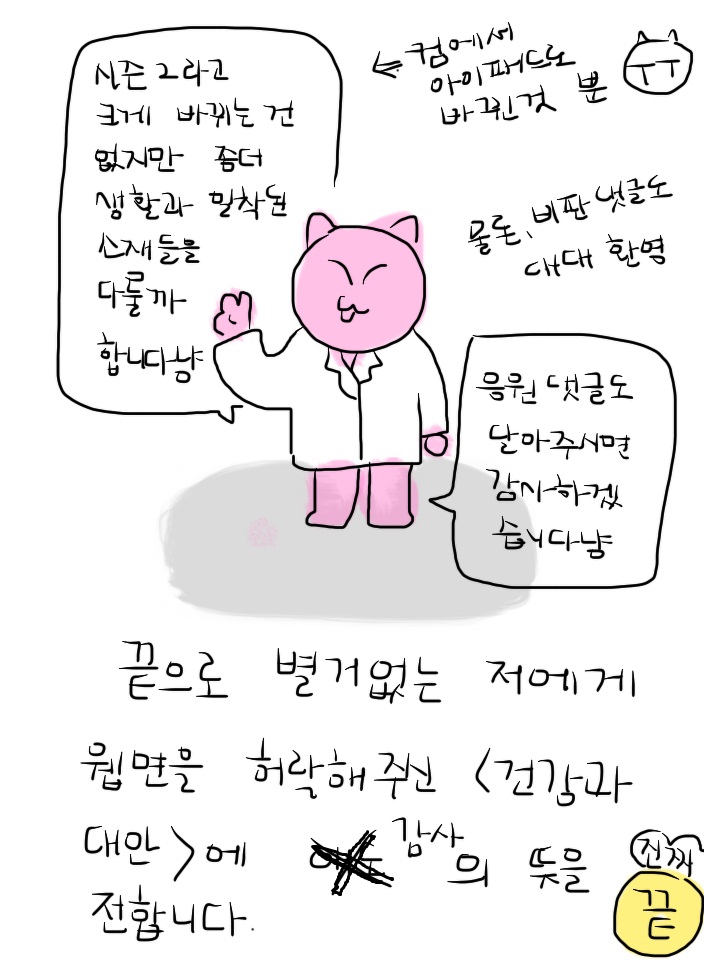 시즌2라고
크게 바뀌는 건
없지만 좀더
생활과 밀착된
소재들을
다룰까
합니다냥
컴에서
아이패드로
바뀐것 뿐
ㅜㅜ
물론, 비판 댓글도
대대 환영
응원 댓글도
달아주시면
감사하겠
습니다냥
끝으로 별거없는 저에게
웹면을 허락해주신 <건강과
대안>에 감사의 뜻을
전합니다.
진짜
끝